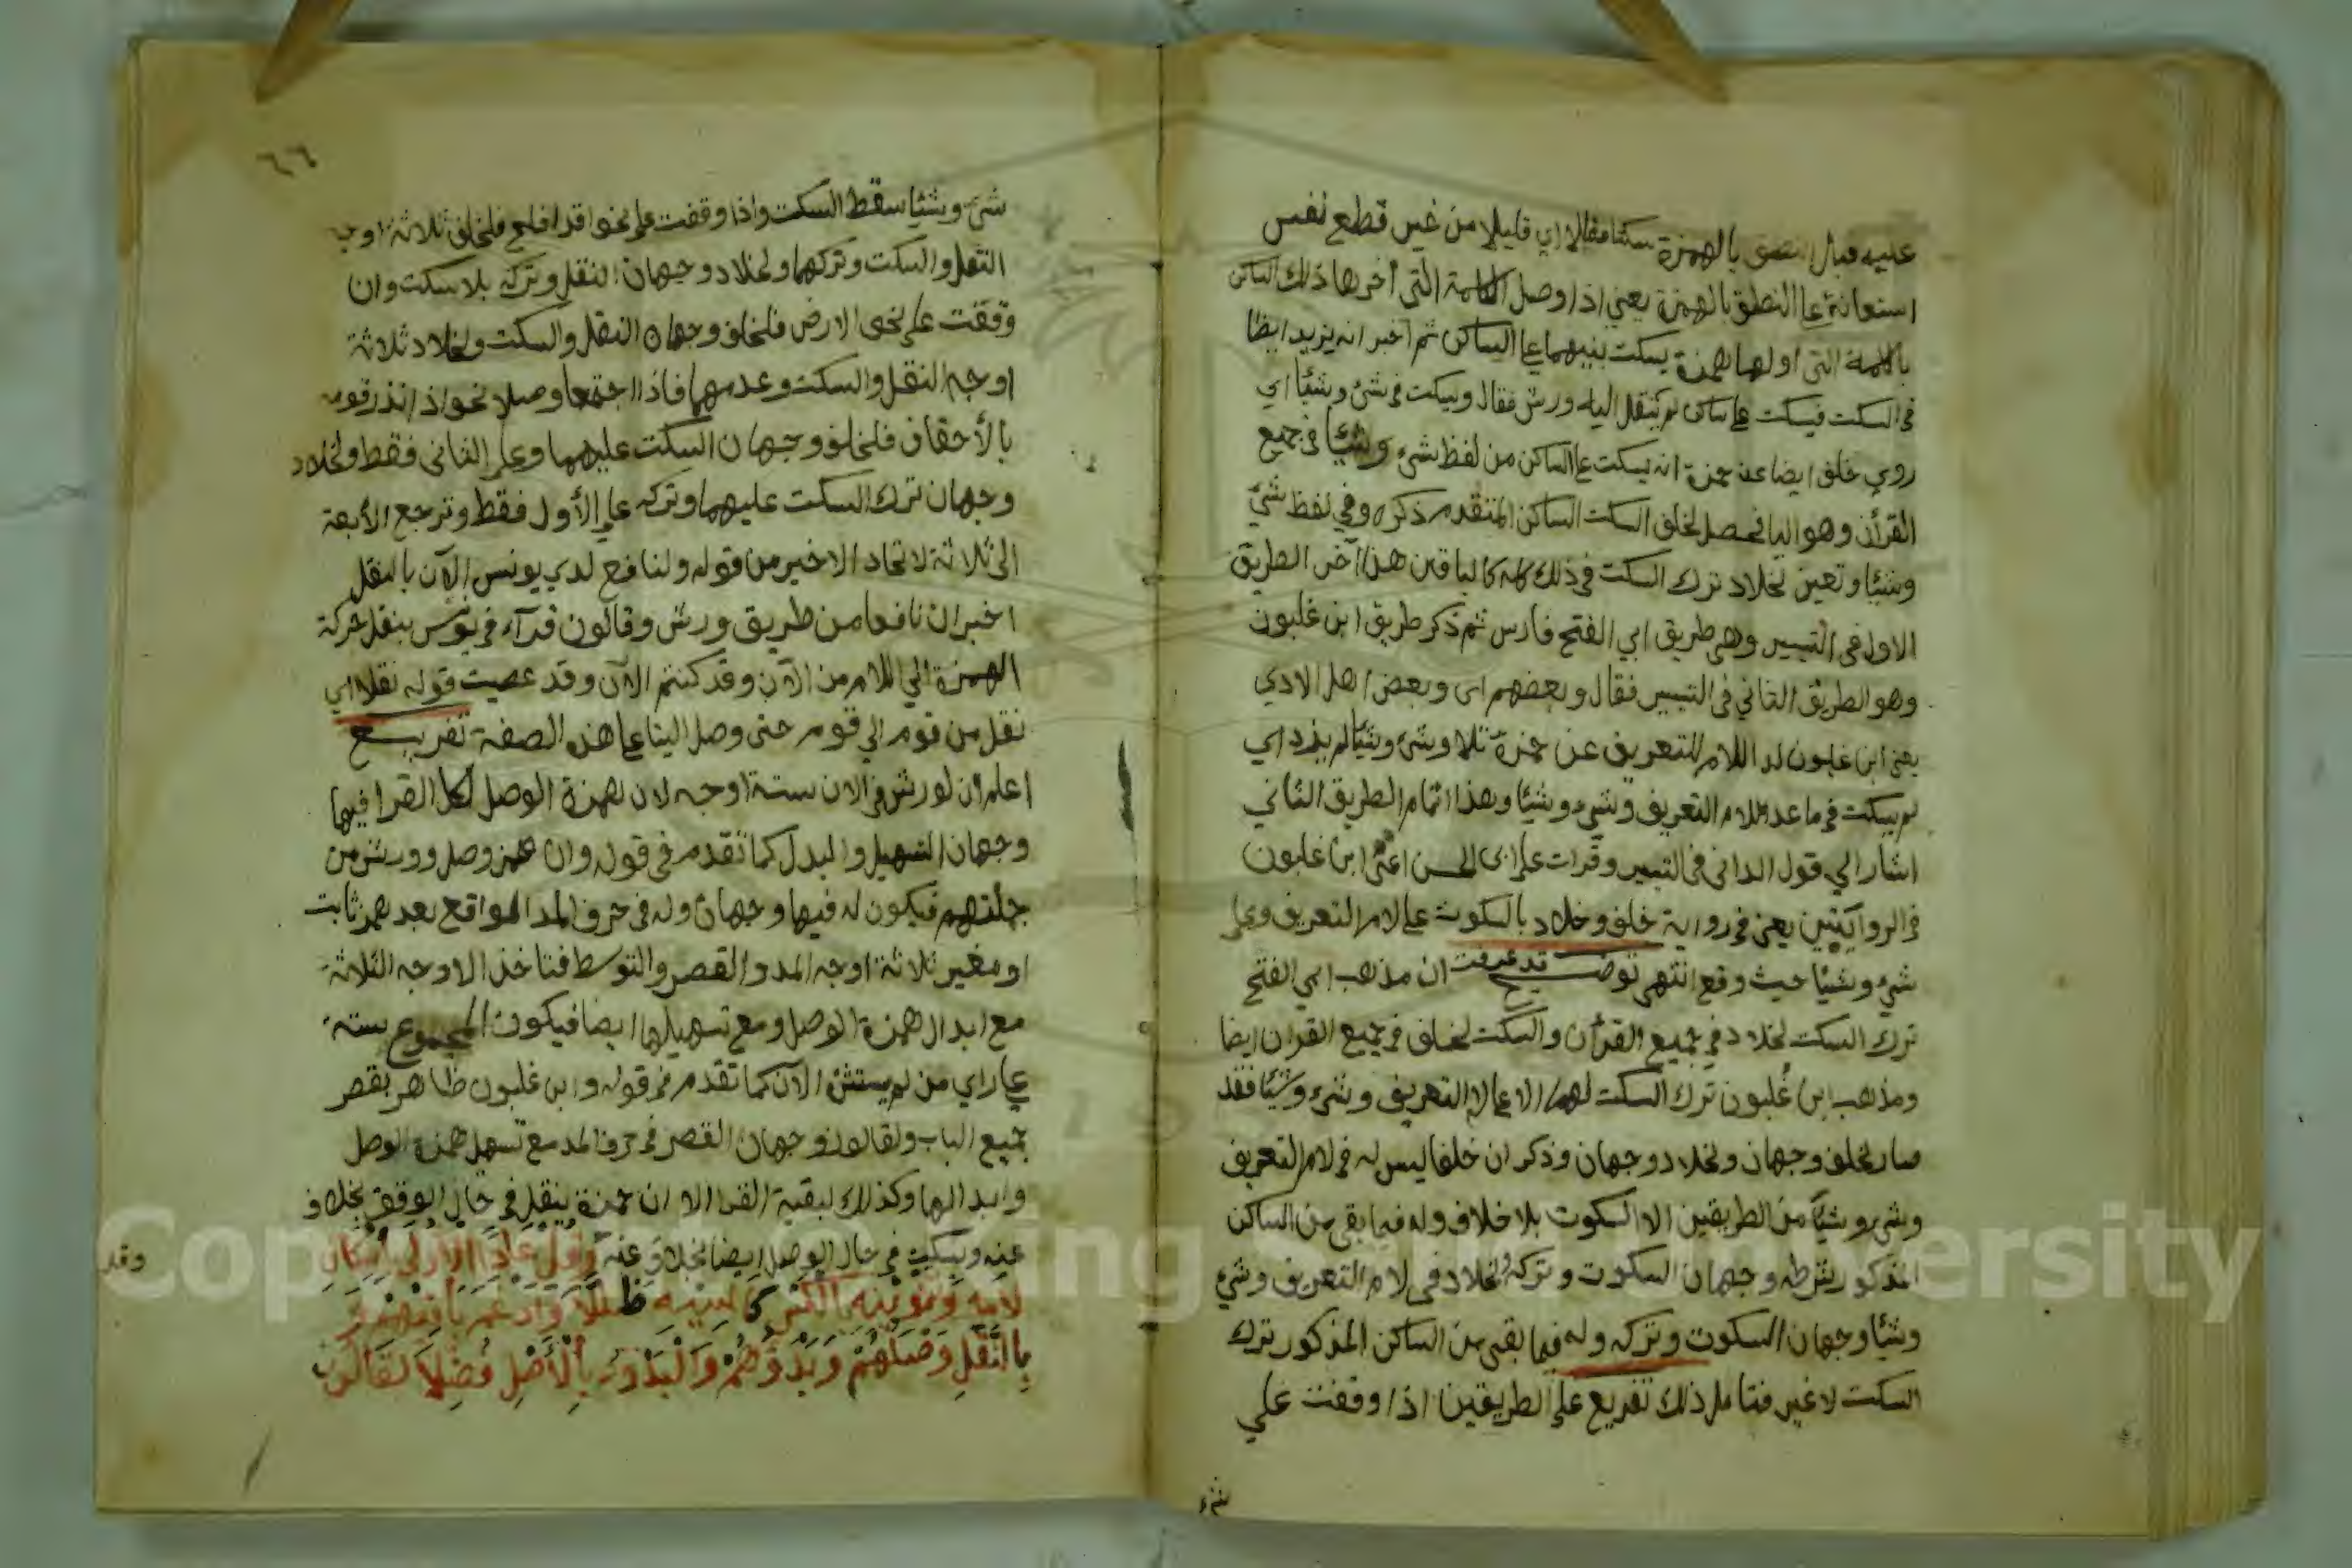 عليه قبل النطق بالهمزة سكتا مقللا اي قليلا من غير قطع نفس
استعانة علي النطق بالهمزة يعني اذا وصل الكلمة التي أخرها ذلك الساكن
بالكلمة التي اولها همزة يسكت بينهما علي الساكن ثم اخبر انه يزيد ايضا
في السكت فيسكت علي ساكن لم ينقل اليه ورش فقال ويسكت في شئ وشيئا اي
روي خلف ايضا عن حمزة انه يسكت علي الساكن من لفظ شئ وشيئا في جميع
القرأن وهو اليا فحصل لخلف السكت الساكن المتقدم ذكره وفي لفظ شئ
وشيئا وتعين لخلاد ترك السكت في ذلك كله كالباقين هذا آخر الطريق
الاول في التيسير وهي طريق ابي الفتح فارس ثم ذكر طريق ابن غلبون
وهو الطريق الثاني في التيسير فقال وبعضهم اي وبعض اهل الادي
يعني ابن غلبون لدا اللام للتعريف عن حمزة تلا وشئ وشيئا لم يزد اي
لم يسكت في ما عدا لام التعريف وشئ وشيئا وهذا تمام الطريق الثاني
اشار الي قول الداني في التيسير وقرات علي ابي الحسن اعني ابن غلبون
في الروايتين يعني في رواية خلف وخلاد بالسكوت علي لام التعريف وعلي
شئ وشيئا حيث وقع انتهي توضيح قد عرفت ان مذهب ابي الفتح
ترك السكت لخلاد في جميع القرأن والسكت لخلف في جميع القران ايضا
ومذهب ابن غلبون ترك السكت لهما الا علي لام التعريف وشئ وشيئا فقد
صار لخلف وجهان ولخلاد وجهان وذكر ان خلفا ليس له في لام التعريف
وشئ وشيئا من الطريقين الا السكوت بلا خلاف وله فيما بقي من الساكن
المذكور بشرطه وجهان السكوت وتركه ولخلاد في لام التعريف وشئ
وشيئا وجهان السكوت وتركه وله فيما بقي من الساكن المذكور ترك
السكت لا غير فتامل ذلك تفريع علي الطريقين اذا وقفت علي
شئ
٦٦
شئ وشيئا سقط السكت واذا وقفت علي نحو قد افلح فلخلف ثلاثة اوجه
النقل والسكت وتركهما ولخلاد وجهان النقل وتركه بلا سكت وان
وقفت علي نحو الارض فلخلف وجهان النقل والسكت ولخلاد ثلاثة
اوجه النقل والسكت وعدمهما فاذا اجتمعا وصلا نحو اذ انذر قومه
بالأحقاف فلخلف وجهان السكت عليهما وعلي الثاني فقط ولخلاد
وجهان ترك السكت عليهما وتركه علي الأول فقط وترجع الأبعة
الي ثلاثة لاتحاد الاخير من قوله ولنافع لدي يونس الآن بالنقل
اخبر ان نافعا من طريق ورش وقالون قرآء في يونس بنقل حركة
الهمزة الي اللام من الآن وقد كنتم الآن وقد عصيت قوله نقلا اي
نقل من قوم الي قوم حتي وصل الينا علي هذه الصفة تفريع
اعلم ان لورش في الان ستة اوجه لان همزة الوصل لكل القرا فيها
وجهان التسهيل والبدل كما تقدم في قوله وان همز وصل وورش من
جملتهم فيكون له فيها وجهان وله في حرف المد الواقع بعد همز ثابت
او مغير ثلاثة اوجه المد والقصر والتوسط فتاخذ الاوجه الثلاثة
مع ابدال همزة الوصل ومع تسهيلها ايضا فيكون المجموع ستة
علي راي من لم يستثن الآن كما تقدم في قوله وابن غلبون طاهر بقصر
جميع الباب ولقالون وجهان القصر في حرف المد مع تسهيل همزة الوصل
وابدالها وكذلك لبقية القرا الا ان حمزة ينقل في حال الوقف بخلاف
عنه ويسكت في حال الوصل ايضا بخلاف عنه وَقُلْ عَادًا الأُولَى بِإِسْكَانِ
لَامِهِ وَتَنْوِينُهُ بِالْكَسْرِ كَاسِيهِ ظَلَّلَا وَأَدْغَمَ بَاقِيهِمْ
بِالنَّقْلِ وَصْلُهُمْ وَبَدْؤُهُمْ وَالْبَدْؤُ بِالْأَصْلِ فُضِّلَا لِقَالُونَ
وقد